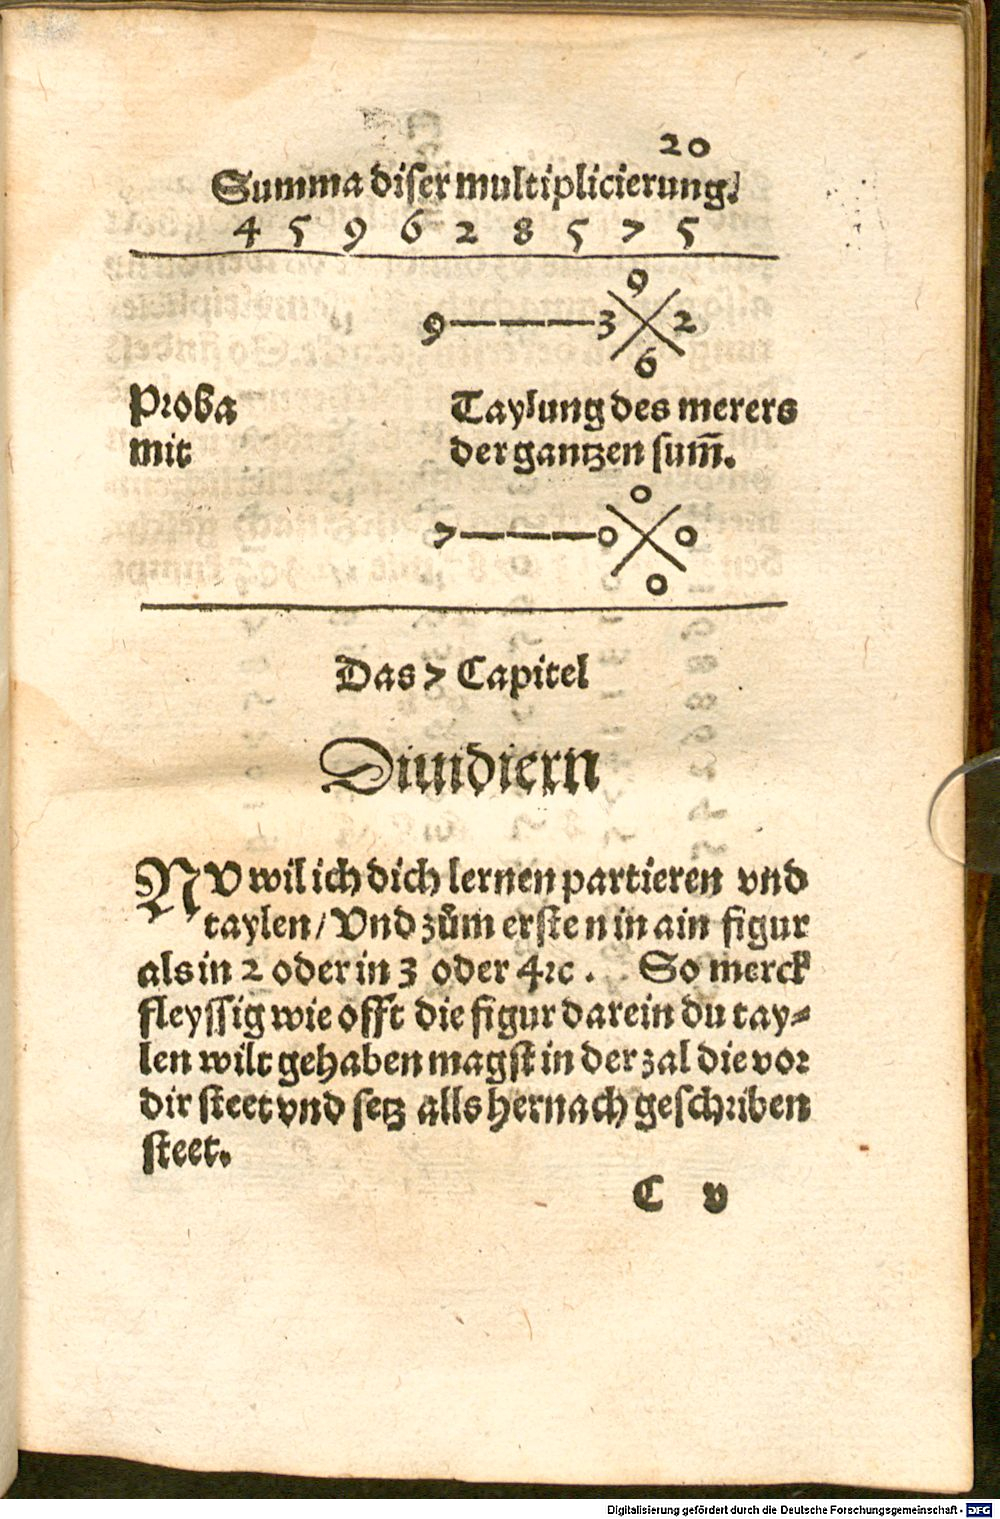 20
Summa diser multiplicierung.
4 5 9 6 2 8 5 7 5
9
9 — — — 3 2
6
Proba Taylung des merers
mit der gantzen sum̃.
0
7 — — — 0 0
0
Das 7 Capitel
Diuidiern
NV wil ich dich lernen partieren vnd
taylen / Vnd zům ersten in ain figur
als in 2 oder in 3 oder 4 ꝛc. So merck
fleyssig wie offt die figur darein du tay⸗
len wilt gehaben magst in der zal die vor
dir steet vnd setz alls hernach geschriben
steet.
C v
Digitalisierung gefördert durch die Deutsche Forschungsgemeinschaft - DFG